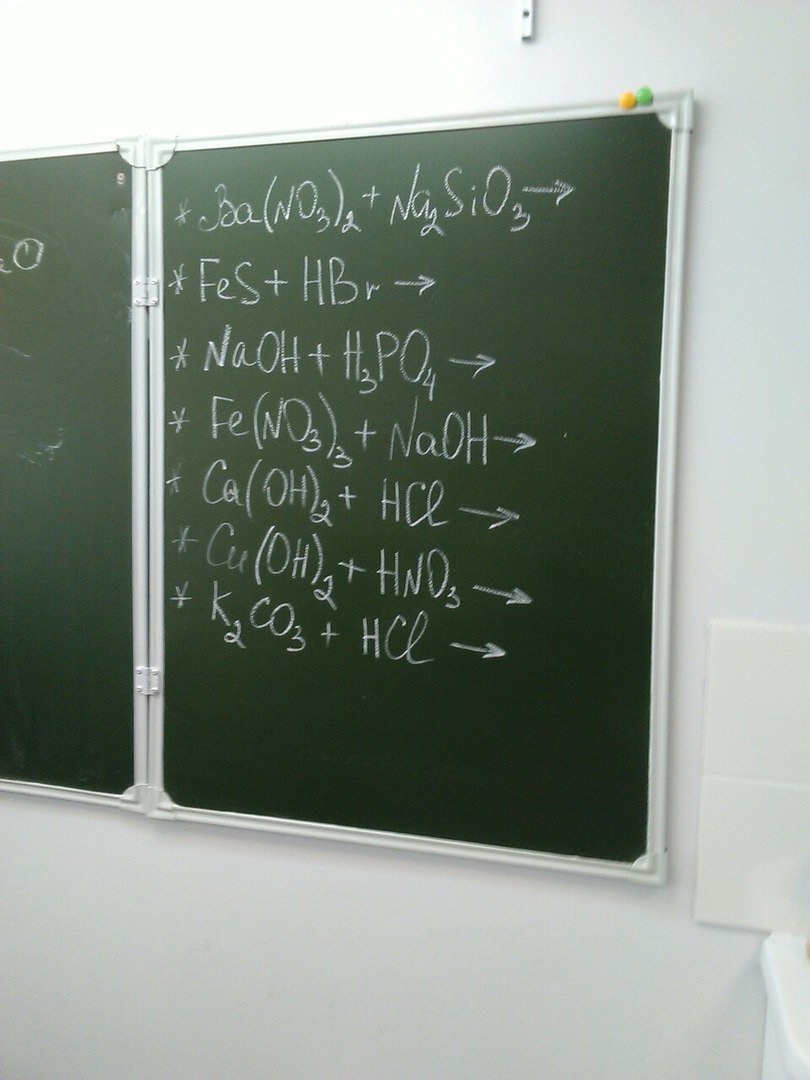 * Ba(NO₃)₂ + Na₂SiO₃ →
* FeS + HBr →
* NaOH + H₃PO₄ →
* Fe(NO₃)₃ + NaOH →
* Ca(OH)₂ + HCl →
* Cu(OH)₂ + HNO₃ →
* K₂CO₃ + HCl →